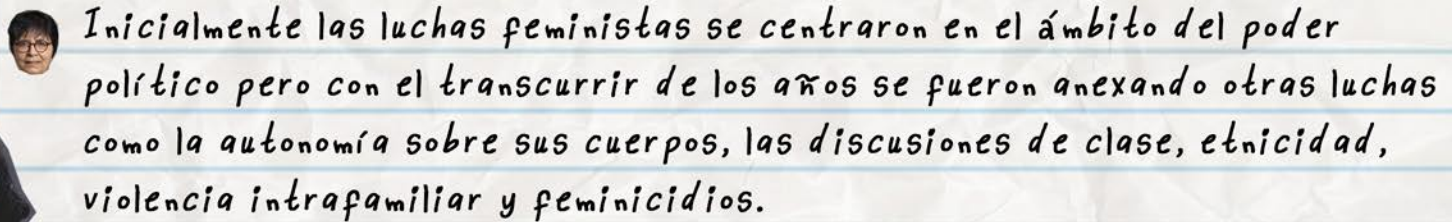 Inicialmente las luchas feministas se centraron en el ámbito del poder
político pero con el transcurrir de los años se fueron anexando otras luchas
como la autonomía sobre sus cuerpos, las discusiones de clase, etnicidad,
violencia intrafamiliar y feminicidios.